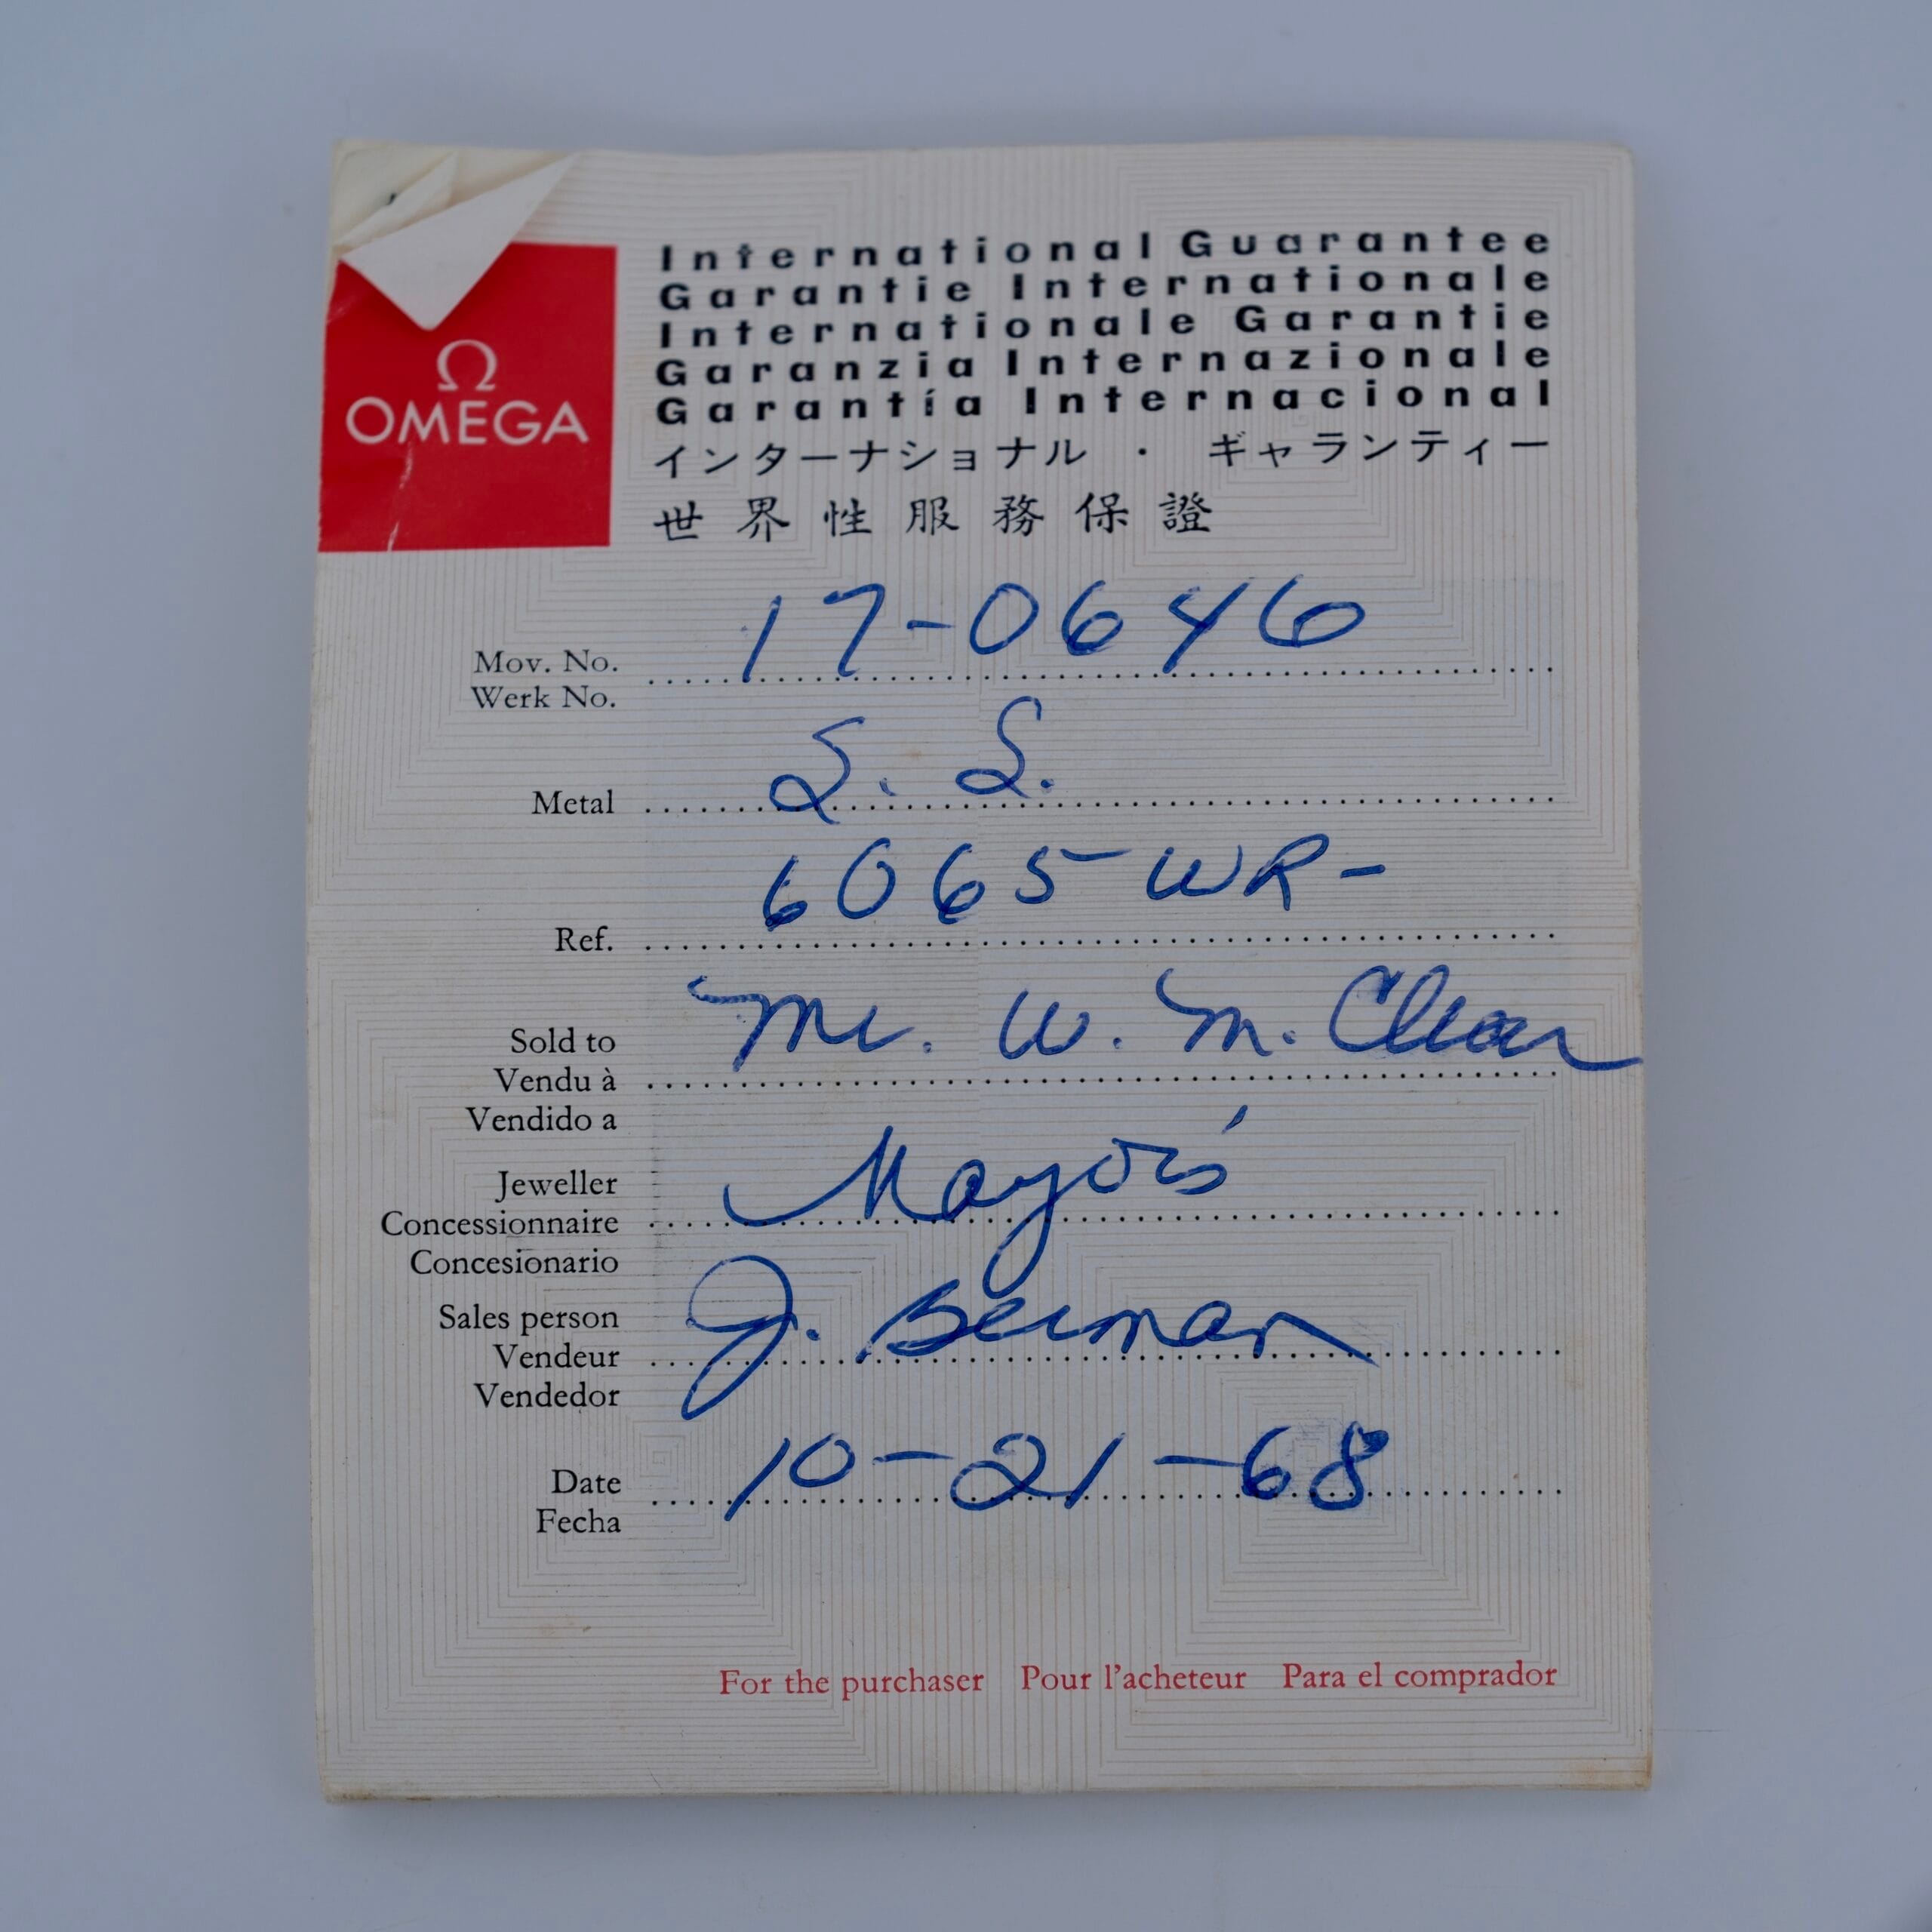 International Guarantee
Garantie Internationale
Internationale Garantie
Garanzia Internazionale
Garantía Internacional
インターナショナル・ギャランティー
世界性服務保證
Ω
OMEGA
Mov. No. 17-0646
Werk No.
Metal S. S.
Ref. 6065-WR-
Sold to Mr. W. M.
Vendu à
Vendido a
Jeweller Mayor's
Concessionnaire
Concesionario
Sales person J. Berman
Vendeur
Vendedor
Date 10-21-68
Fecha
For the purchaser Pour l'acheteur Para el comprador